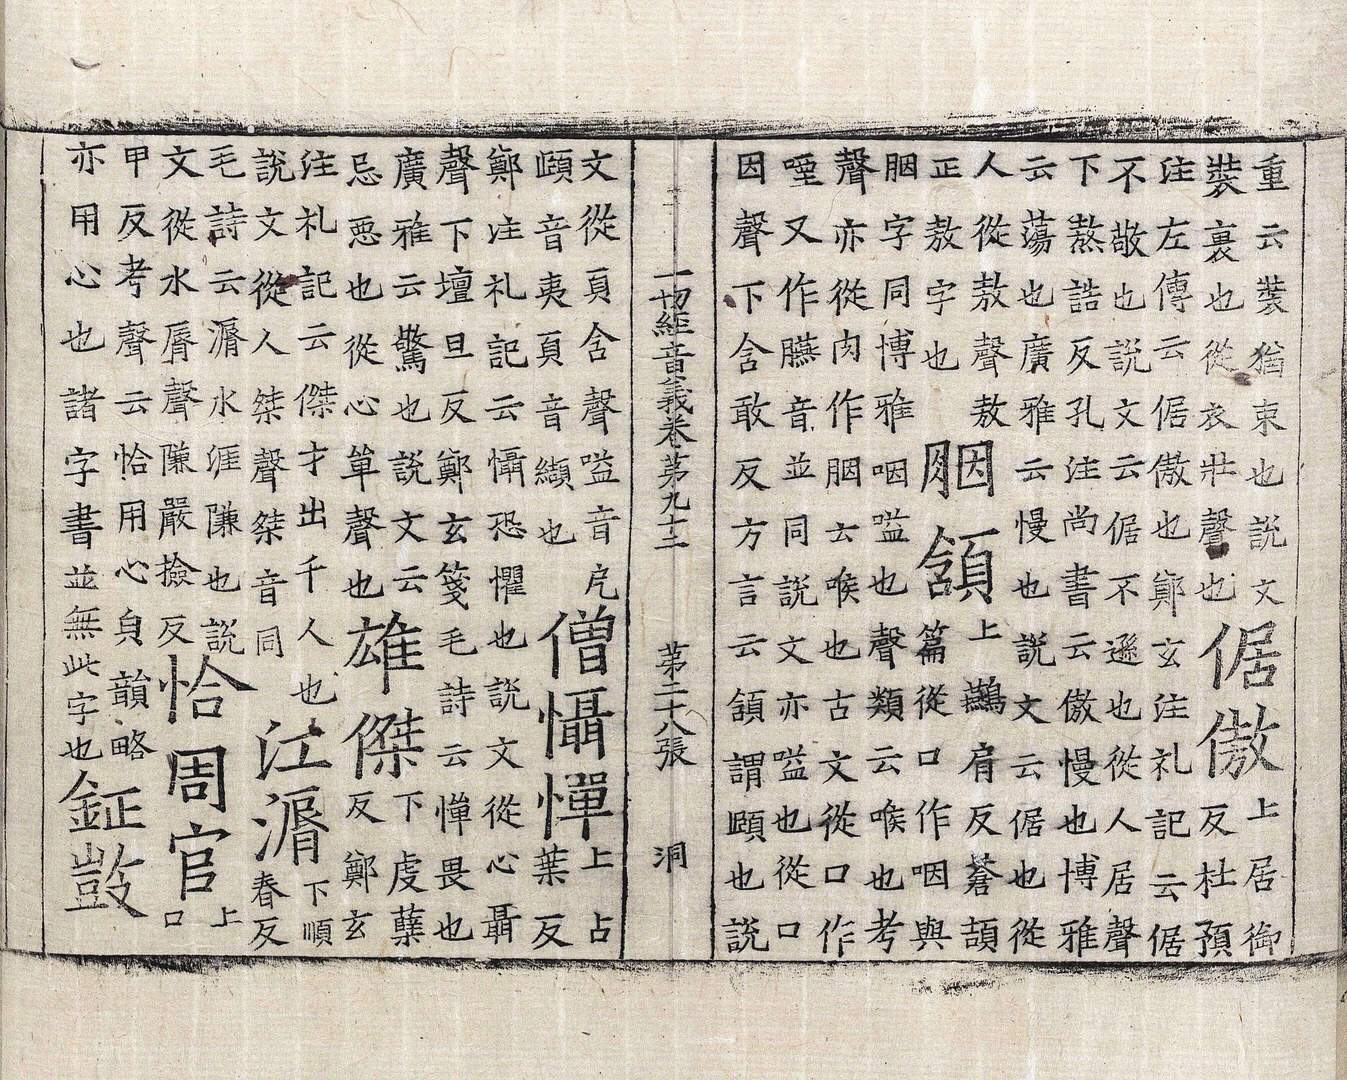 重云裝猶束也說文
裝裹也從衣壯聲也
倨傲
上居御
反杜預
注左傳云倨傲也鄭玄注礼記云倨
不敬也說文云倨不遜也從人居聲
下熬誥反孔注尚書云傲慢也博雅
云蕩也廣雅云慢也說文云倨也從
人從敖聲敖
正敖字也
胭頷
上鷰肩反蒼頡
篇從口作咽與
胭字同博雅咽嗌也聲類云喉也考
聲亦從肉作胭云喉也古文從口作
㖶又作臙音並同說文亦嗌也從口
因聲下含敢反方言云頷謂頤也說
一切經音義卷第九十二 第二十八張 洞
文從頁含聲嗌音戹
頤音夷頁音纈也
僧懾憚
上占
葉反
鄭注礼記云懾恐懼也說文從心聶
聲下壇旦反鄭玄箋毛詩云憚畏也
廣雅云驚也說文云
忌惡也從心單聲也
雄傑
下虔蘖
反鄭玄
注礼記云傑才出千人也
說文從人桀聲桀音同
江漘
下順
春反
毛詩云漘水涯隒也說
文從水脣聲隒嚴撿反
恰周官
上
口
甲反考聲云恰用心皃韻略
亦用心也諸字書並無此字也
鉦鼓